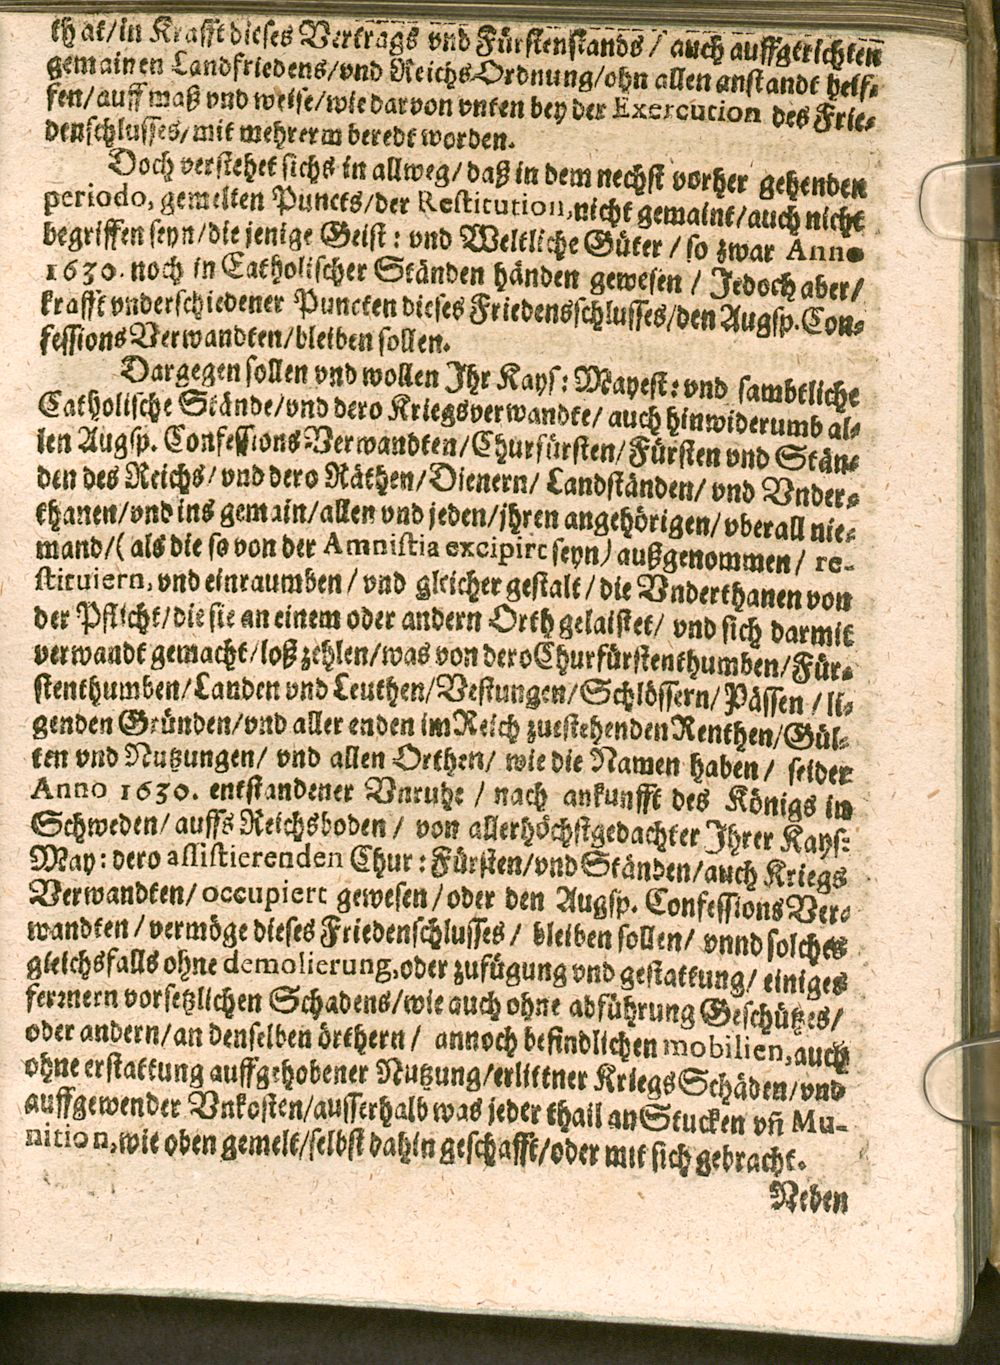 that/in Krafft dieses Vertrags vnd Fürstenstands / auch auffgerichten
gemainen Landfriedens/vnd ReichsOrdnung/ohn allen anstandt helf-
fen/auff maß vnd weise/wie darvon vnten bey der Exercution des Frie-
denschlusses/mit mehrerm beredt worden.
Doch verstehet sichs in allweg/ daß in dem nechst vorher gehenden
periodo, gemelten Puncts/der Restitution, nicht gemaint/auch nicht
begriffen seyn/die jenige Geist: vnd Weltliche Güter / so zwar Anno
1630. noch in Catholischer Ständen händen gewesen / Jedoch aber/
krafft vnderschiedener Puncten dieses Friedensschlusses/den Augsp. Con-
fessions Verwandten/bleiben sollen.
Dargegen sollen vnd wollen Ihr Kays: Mayest: vnd sambtliche
Catholische Stände/vnd dero Kriegsverwandte/ auch hinwiderumb al-
len Augsp. Confessions-Verwandten/Churfürsten/Fürsten vnd Stän-
den des Reichs/ vnd dero Räthen/Dienern/ Landständen/ vnd Vnder-
thanen/vnd ins gemain/allen vnd jeden/jhren angehörigen/ vberall nie-
mand/( als die so von der Amnistia excipirt seyn) außgenommen/ re-
stituiern, vnd einraumben / vnd gleicher gestalt / die Vnderthanen von
der Pflicht/die sie an einem oder andern Orth gelaistet/ vnd sich darmit
verwandt gemacht/loß zehlen/was von dero Churfürstenthumben/Für-
stenthumben/Landen vnd Leuthen/Vestungen/Schlössern/Pässen / li-
genden Gründen/vnd aller enden im Reich zuestehenden Renthen/Gül-
ten vnd Nutzungen/ vnd allen Orthen/ wie die Namen haben/ seider
Anno 1630. entstandener Vnruhe / nach ankunfft des Königs in
Schweden/ auffs Reichsboden / von allerhöchstgedachter Ihrer Kays:
May: dero assistierenden Chur: Fürsten/vnd Ständen/auch Kriegs
Verwandten/ occupiert gewesen/oder den Augsp. Confessions Ver-
wandten / vermöge dieses Friedenschlusses / bleiben sollen/ vnnd solches
gleichsfalls ohne demolierung, oder zufügung vnd gestattung/ einiges
fermern vorsetzlichen Schadens/wie auch ohne abführung Geschützes/
oder andern/an denselben örthern / annoch befindlichen mobilien, auch
ohne erstattung auffgehobener Nutzung/erlittner Kriegs Schäden/vnd
auffgewender Vnkosten/ausserhalb was jeder thail an Stucken vñ Mu-
nition, wie oben gemelt/selbst dahin geschafft/oder mit sich gebracht.
Neben